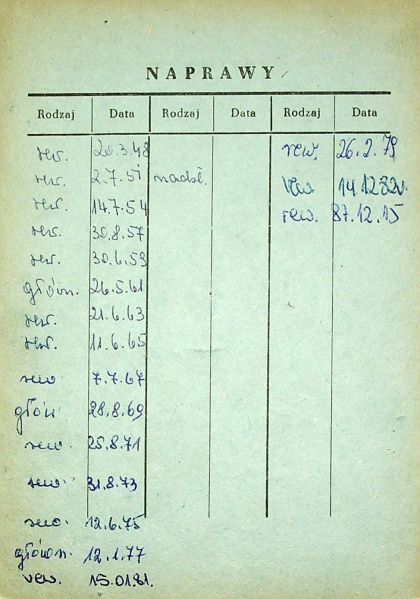 NAPRAWY
Rodzaj Data Rodzaj Data Rodzaj Data
rew. 20.3.48 rew. 26.2.79
rew. 2.7.51 nadsł. rew 14.12.82r.
rew. 14.7.54 rew. 87.12.15
rew. 30.8.57
rew. 30.6.59
główn. 26.5.61
rew. 21.6.63
rew. 11.6.65
rew. 7.7.67
głów 28.8.69
rew. 25.8.71
rew. 31.8.73
rew. 12.6.75
główn. 12.1.77
rew. 15.01.81.